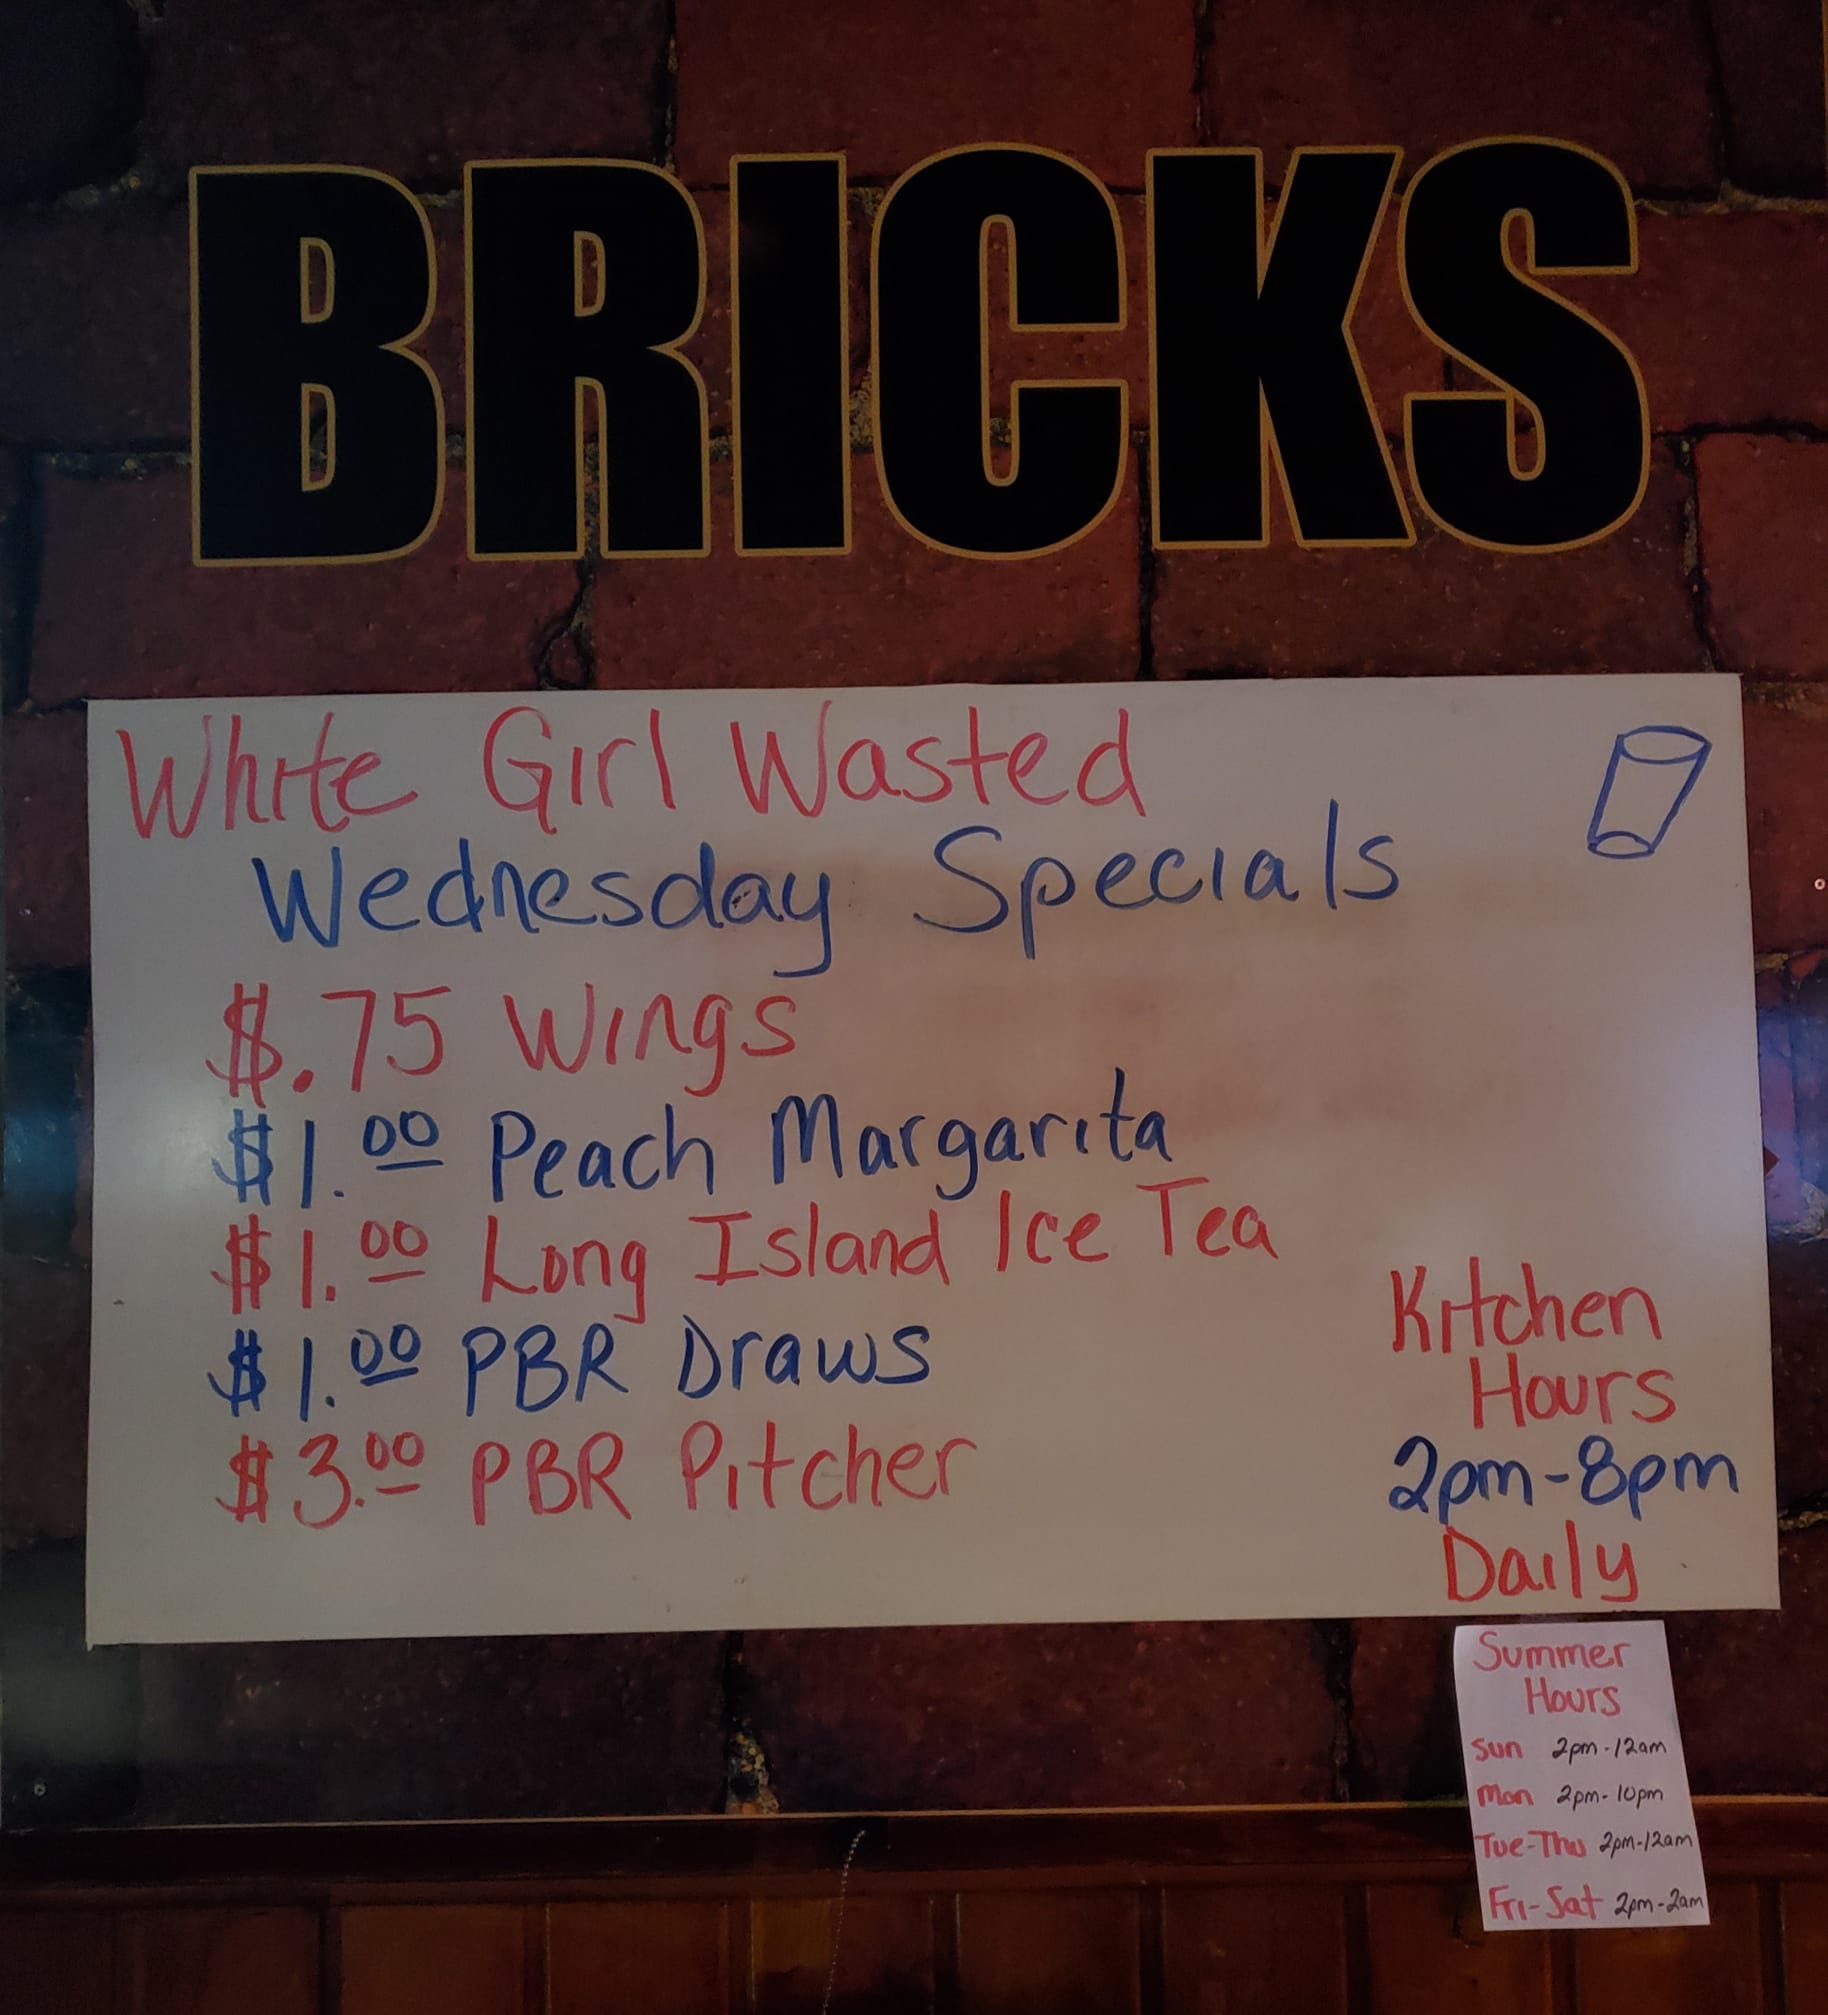 BRICKS
White Girl Wasted
Wednesday Specials
$.75 Wings
$1.00 Peach Margarita
$1.00 Long Island Ice Tea
$1.00 PBR Draws
$3.00 PBR Pitcher
Kitchen
Hours
2pm-8pm
Daily
Summer
Hours
Sun 2pm-12am
Mon 2pm-10pm
Tue-Thu 2pm-12am
Fri-Sat 2pm-2am